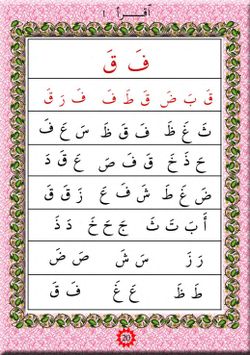 أقرأ ١
فَ قَ
قَ بَ ضَ قَ طَ فَ فَ رَ قَ
ثَ غَ ظَ فَ قَ ظَ سَ عَ فَ
حَ ذَ خَ قَ فَ صَ عَ قَ دَ
ضَ غَ طَ شَ فَ عَ زَ قَ قَ
أَ بَ تَ ثَ جَ حَ خَ دَ ذَ
رَ زَ سَ شَ صَ ضَ
طَ ظَ عَ غَ فَ قَ
20